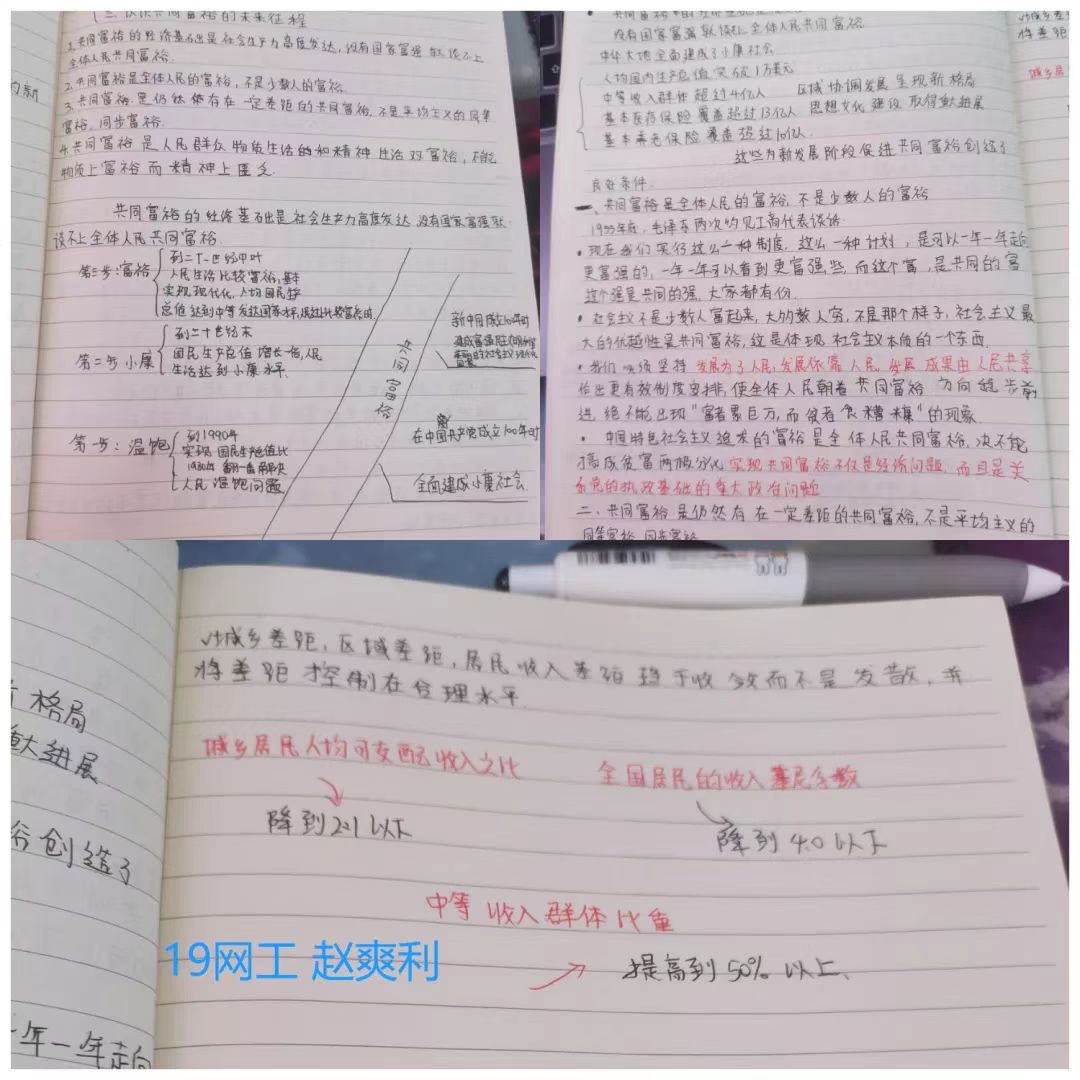 二、认识共同富裕的未来征程
1.共同富裕的经济基础是社会生产力高度发达,没有国家富强就谈不上
全体人民共同富裕.
2.共同富裕是全体人民的富裕,不是少数人的富裕.
3.共同富裕是仍然存在一定差距的共同富裕,不是平均主义的同等
富裕,同步富裕.
4.共同富裕是人民群众物质生活的和精神生活双富裕,不能
物质上富裕而精神上匮乏.
共同富裕的经济基础是社会生产力高度发达,没有国家富强就
谈不上全体人民共同富裕.
第三步:富裕
到二十一世纪中叶
人民生活比较富裕,基本
实现现代化,人均国民生产
总值达到中等发达国家水平,
第二步小康
到二十世纪末
国民生产总值增长一倍,人民
生活达到小康水平.
第一步:温饱
到1990年
实现国民生产总值比
1980年翻一番解决
人民温饱问题
新中国成立100年时
在中国共产党成立100年时
全面建成小康社会
没有国家富强就谈不上全体人民共同富裕
中华大地全面建成了小康社会
人均国内生产总值突破1万美元
中等收入群体超过4亿人 区域协调发展呈现新格局
基本医疗保险覆盖超过13亿人 思想文化建设取得重大进展
基本养老保险覆盖超过10亿人
这些为新发展阶段促进共同富裕创造了
良好条件.
一、共同富裕是全体人民的富裕,不是少数人的富裕
1955年底,毛泽东两次约见工商代表谈话
·现在我们实行这么一种制度,这么一种计划,是可以一年一年走向
更富强的,一年一年可以看到更富强些,而这个富,是共同的富
这个强是共同的强,大家都有份.
·社会主义不是少数人富起来,大多数人穷,不是那个样子,社会主义最
大的优越性是共同富裕,这是体现社会主义本质的一个东西.
·我们必须坚持发展为了人民,发展依靠人民,发展成果由人民共享
作出更有效制度安排,使全体人民朝着共同富裕方向稳步前
进,绝不能出现"富者累巨万,而贫者食糟糠"的现象.
·中国特色社会主义追求的富裕是全体人民共同富裕,决不能
搞成贫富两极分化实现共同富裕不仅是经济问题,而且是关
系党的执政基础的重大政治问题
二、共同富裕是仍然存在一定差距的共同富裕,不是平均主义的
同等富裕,同步富裕
城乡差距,区域差距,居民收入差距趋于收敛而不是发散,并
将差距控制在合理水平.
城乡居民人均可支配收入之比
全国居民的收入基尼系数
降到2:1以下
降到4.0以下
中等收入群体比重
提高到50%以上.
格局
重大进展
创造了
年一年走向
19网工 赵爽利